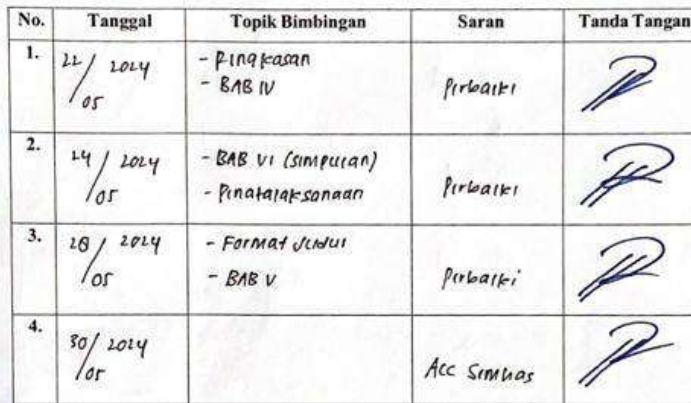 No. Tanggal Topik Bimbingan Saran Tanda Tangan
1. 22/05 2024 - Ringkasan
- BAB IV Perbaiki
2. 24/05 2024 - BAB VI (simpulan)
- Penatalaksanaan Perbaiki
3. 28/05 2024 - Format Judul
- BAB V Perbaiki
4. 30/05 2024 Acc Semhas